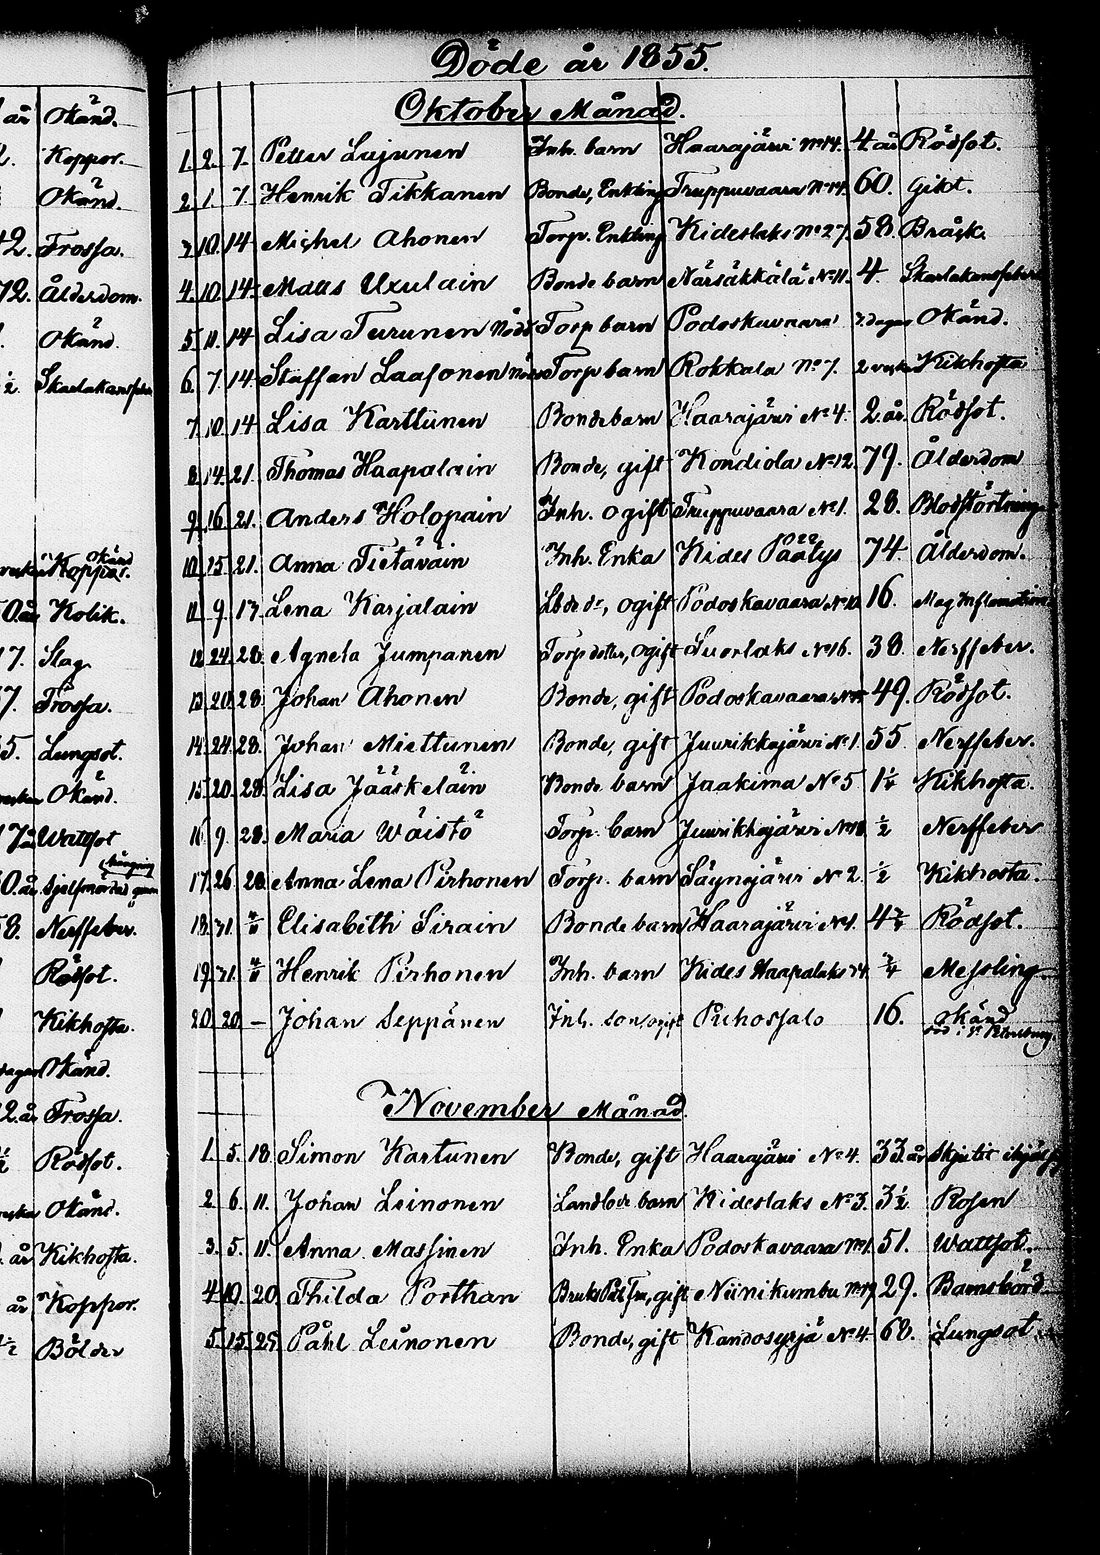 år Okänd.
Koppor.
Okänd.
42. Frossa.
72. Ålderdom.
Okänd.
½. Skarlakansfeber
Okänd
Koppor.
Kolik.
17. Slag
7. Frossa.
35. Lungsot.
Okänd.
Wattsot
hängning
Sjelfmördad genom
58. Nerffeber.
Rödsot.
Kikhosta.
dagar Okänd.
2 år Frossa.
½ Rödsot.
Okänd.
år Kikhosta.
år Koppor.
½ Bölder
Döde år 1855.
Oktober Månad.
1. 2. 7. Petter Lujunen Inh. barn Haarajärvi No 14. 4 år Rödsot.
2. 1. 7. Henrik Tikkanen Bonde, Enkling Truppuvaara No 14. 60. Gikt.
3. 10. 14 Michel Ahonen Torp. Enkling Kideslaks No 27. 58. Bråck.
4. 10. 14. Matts Uxulain Bonde barn Närsäkkälä No 11. 4. Skarlakansfeber
5. 11. 14 Lisa Turunen Nödd. Torp barn Podoskavaara 3. dagar Okänd.
6. 7. 14. Staffan Laasonen Torp barn Rokkala No 7. 2 veckor Kikhosta
7. 10. 14 Lisa Karttunen Bonde barn Haarajärvi No 4. 2 år. Rödsot.
8. 14. 21. Thomas Haapalain Bonde, gift Kondiola No 12. 79. Ålderdom
9. 16. 21. Anders Holopain Inh. ogift Truppuvaara No 1. 28. Blodstörtning
10. 15. 21. Anna Tietäväin Inh. Enka Kides Päätys 74. Ålderdom.
11. 9. 17. Lena Karjalain ogift Podoskavaara No 12 16. Mag Inflamation
12. 24. 28. Agneta Jumpanen Torp dotter, ogift Suorlaks No 16. 38. Nerffeber.
13. 20. 28. Johan Ahonen Bonde, gift Podoskavaara 49. Rödsot.
14. 24. 28. Johan Miettunen Bonde, gift Juurikkajärvi No 1. 55. Nerffeber.
15. 20. 28. Lisa Jääskeläin Bonde barn Jaakima No 5 1¼ Kikhosta.
16. 9. 28. Maria Wäistö Torp. barn Juurikkajärvi No 18. ½ Nerffeber
17. 26. 28. Anna Lena Pirhonen Torp. barn Säynejärvi No 2. ½ Kikhosta.
18. 31. 4/11 Elisabeth Sirain Bonde barn Haarajärvi No 1. 4¾ Rödsot.
19. 31. 4/11 Henrik Pirhonen Inh. barn Kides Haapalaks 14. ¾ Messling
20. 20. — Johan Seppänen Inh. son, ogift Puhossalo 16. okänd
död i St. Petersburg.
November Månad.
1. 5. 18. Simon Kartunen Bonde, gift Haarajärvi No 4. 33 år Skjutit ihjäl sig
2. 6. 11. Johan Leinonen Landbde barn Kideslaks No 3. 3½ Rosen
3. 5. 11. Anna Massinen Inh. Enka Podoskavaara No 1. 51. Wattsot.
4. 10. 20. Thilda Porthan gift Niinikumbu No 19. 29. Barnsbörd
5. 15. 25. Påhl Leinonen Bonde, gift Kandosyrjä No 4. 68. Lungsot.